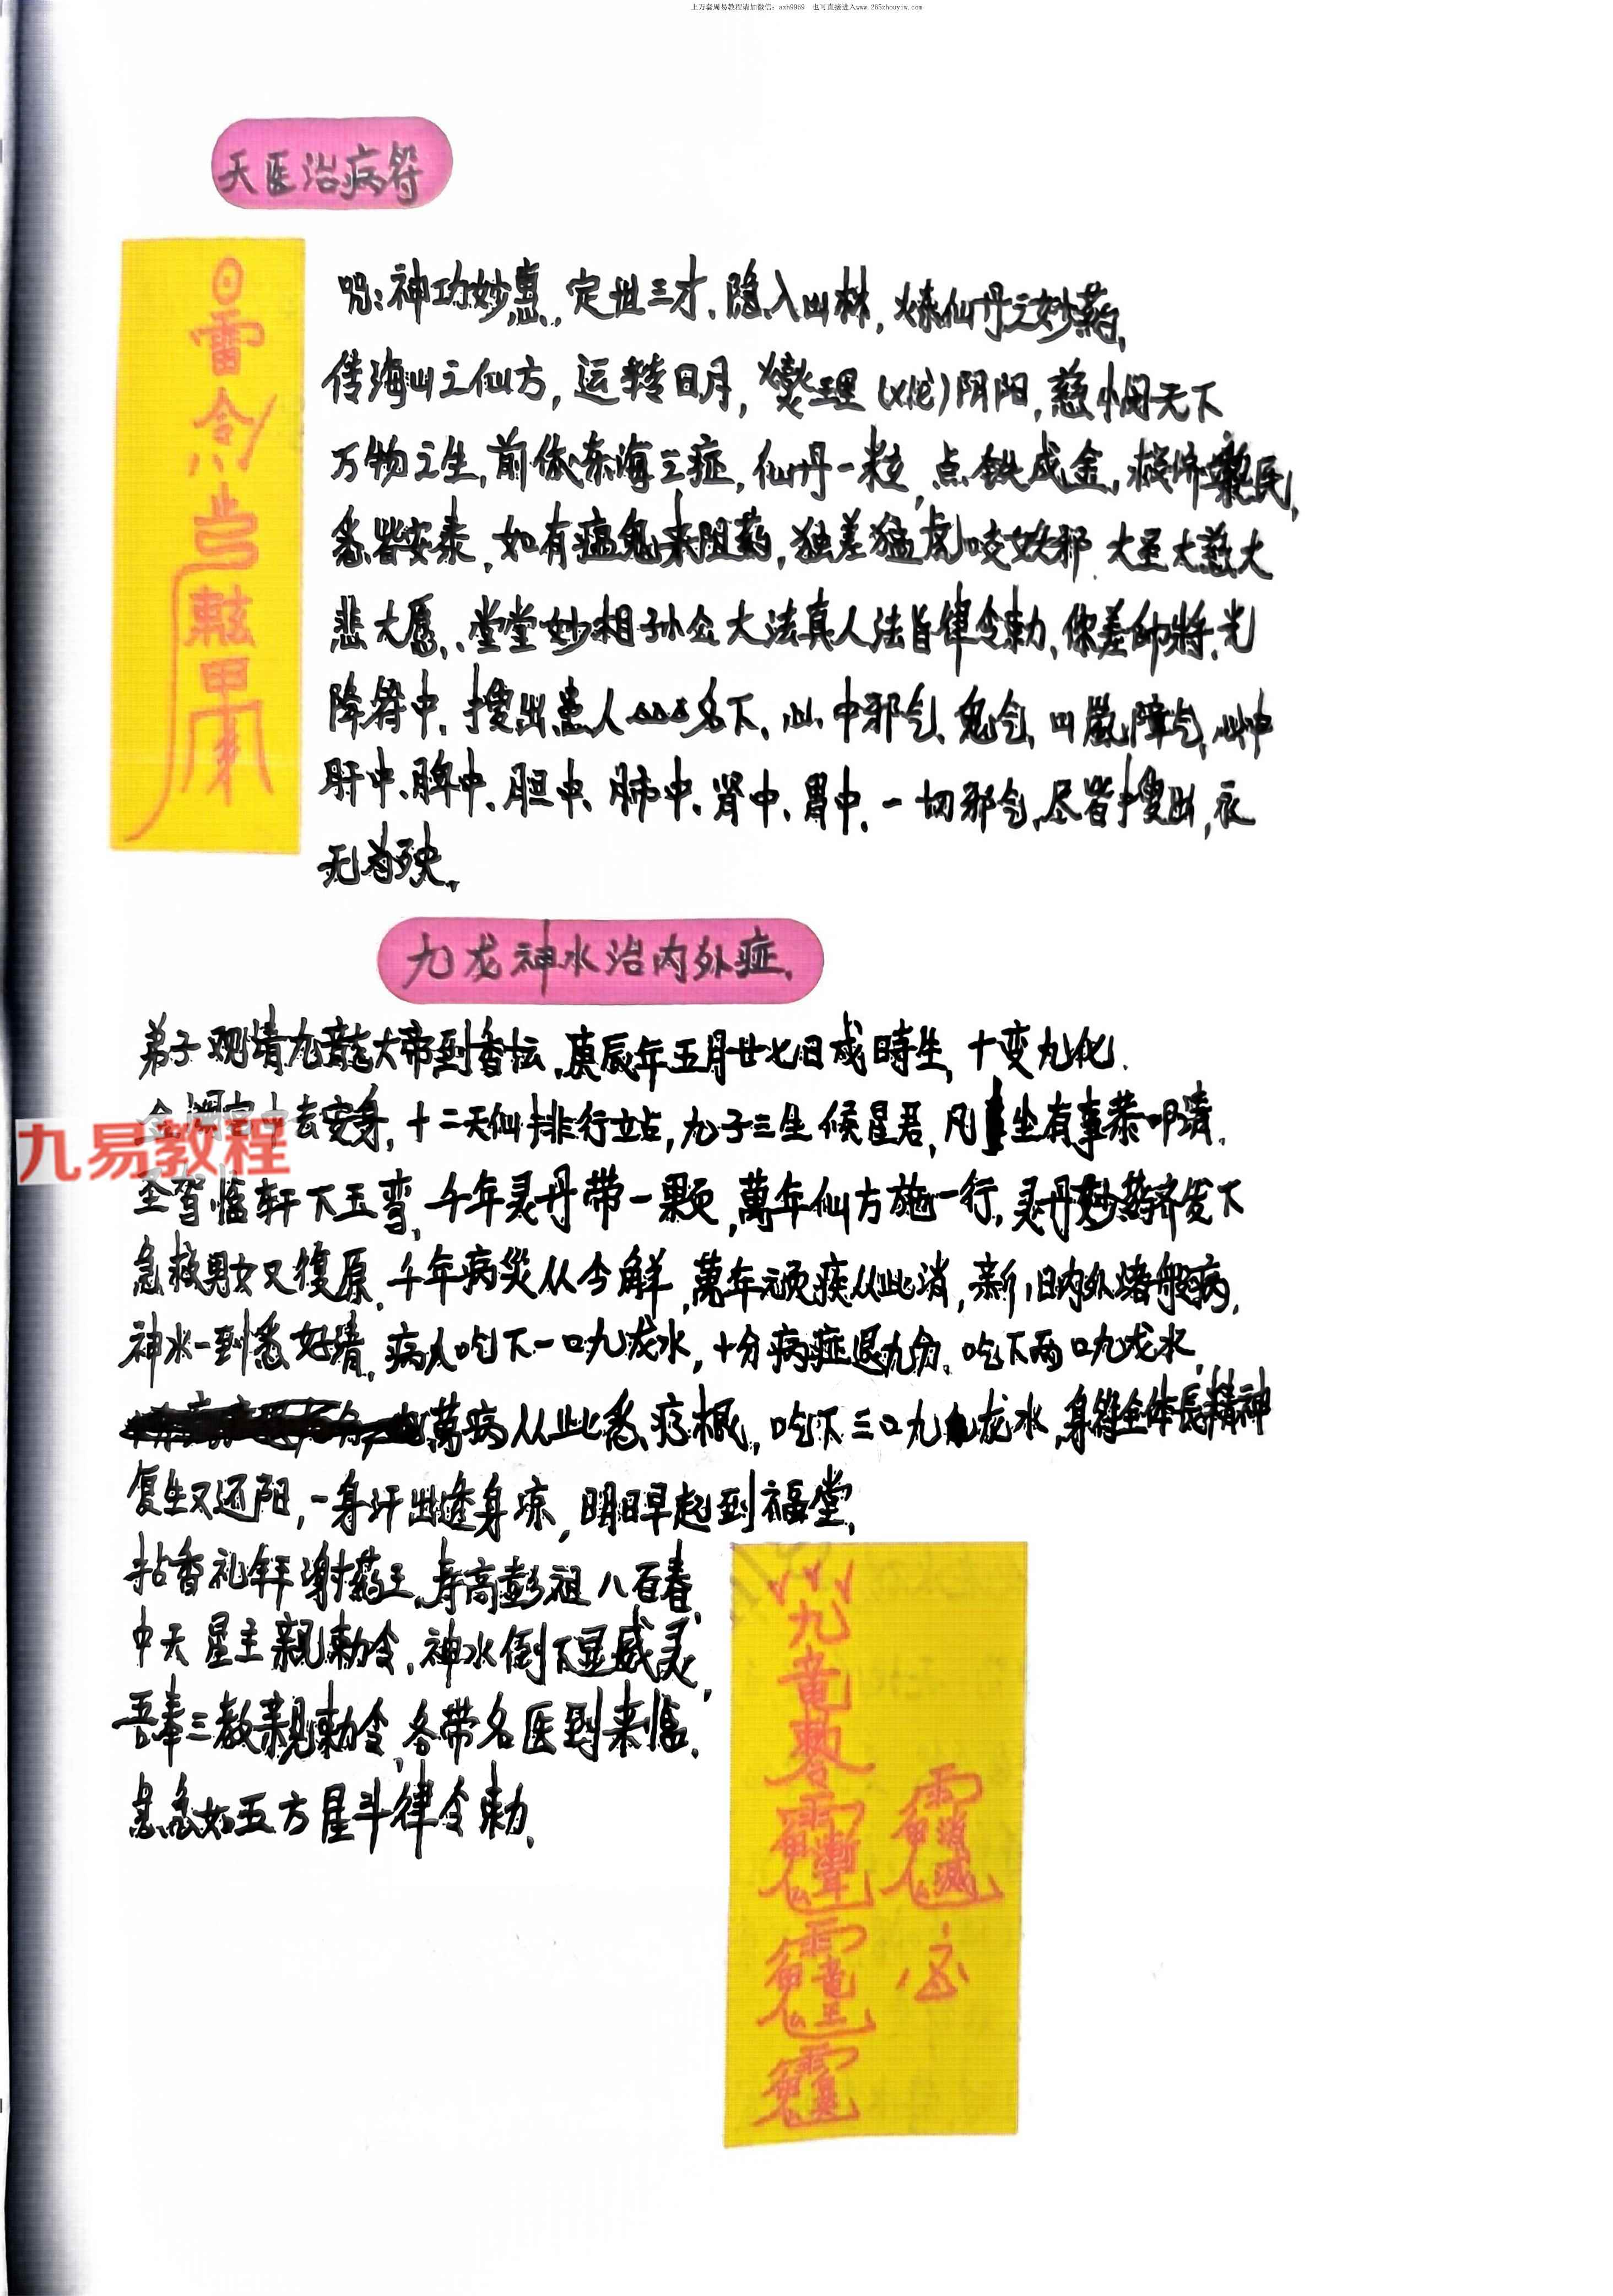 上万套周易教程请加微信：azh9969 也可直接进入www.265zhouyiw.com
天医治病符
雷令
咒：神功妙惠，定世三才，隐入山林，炼仙丹之妙药，
传海山之仙方，运转日月，燮理（文化）阴阳，慈悯天下
万物之生，前依东海三症，仙丹一粒，点铁成金，救济黎民，
悉皆安泰，如有瘟鬼来阻药，独差猛虎咬妖邪，大圣大慈大
悲大愿，堂堂妙相孙公大法真人法旨律令勅，依差帅將，光
降符中，搜出患人△△△名下，心中邪气、鬼气、山嵐瘴气，心中
肝中、脾中、胆中、肺中、肾中、胃中，一切邪气，尽皆搜出，永
无为殃。
九龙神水治内外症。
弟子观请九龍大帝到香坛，庚辰年五月廿七日戍時生，十变九化，
去安身，十二天仙排行站，九子三生候星君，凡坐有事恭叩请，
九易教程
圣驾临轩下玉弯，千年灵丹带一颗，萬年仙方施一行，灵丹妙药齐发下
急救男女又復原，千年病災从今解，萬年顽疾从此消，新旧内外诸般病，
神水一到悉好清，病人吃下一口九龙水，十分病症退九分，吃下两口九龙水，
萬病从此悉疗根，吃下三口九龙水，身符全体長精神
復生又还阳，一身汗出透身凉，明日早起到福堂，
拈香礼拜谢药王，寿高彭祖八百春，
中天星主親勅令，神水倒下显威灵，
吾奉三教亲勅令，各带名医到来临，
急急如五方星斗律令勅。
九竜